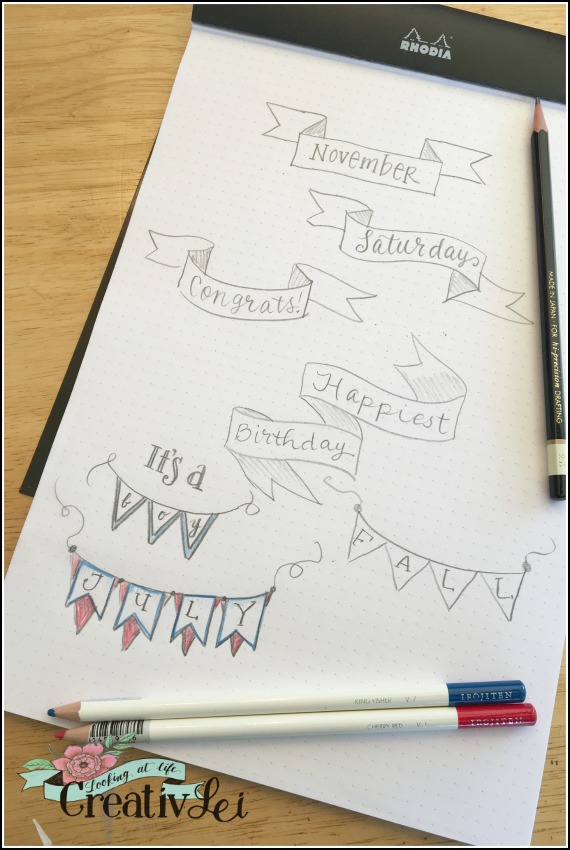 RHODIA
November
Saturdays
Congrats!
Happiest
Birthday
It's a
boy
FALL
JULY
MADE IN JAPAN · FOR hi-precision DRAFTING
KING FISHER V.7
IROJITEN
CHERRY RED V.1
IROJITEN
Looking at life
CreativLei